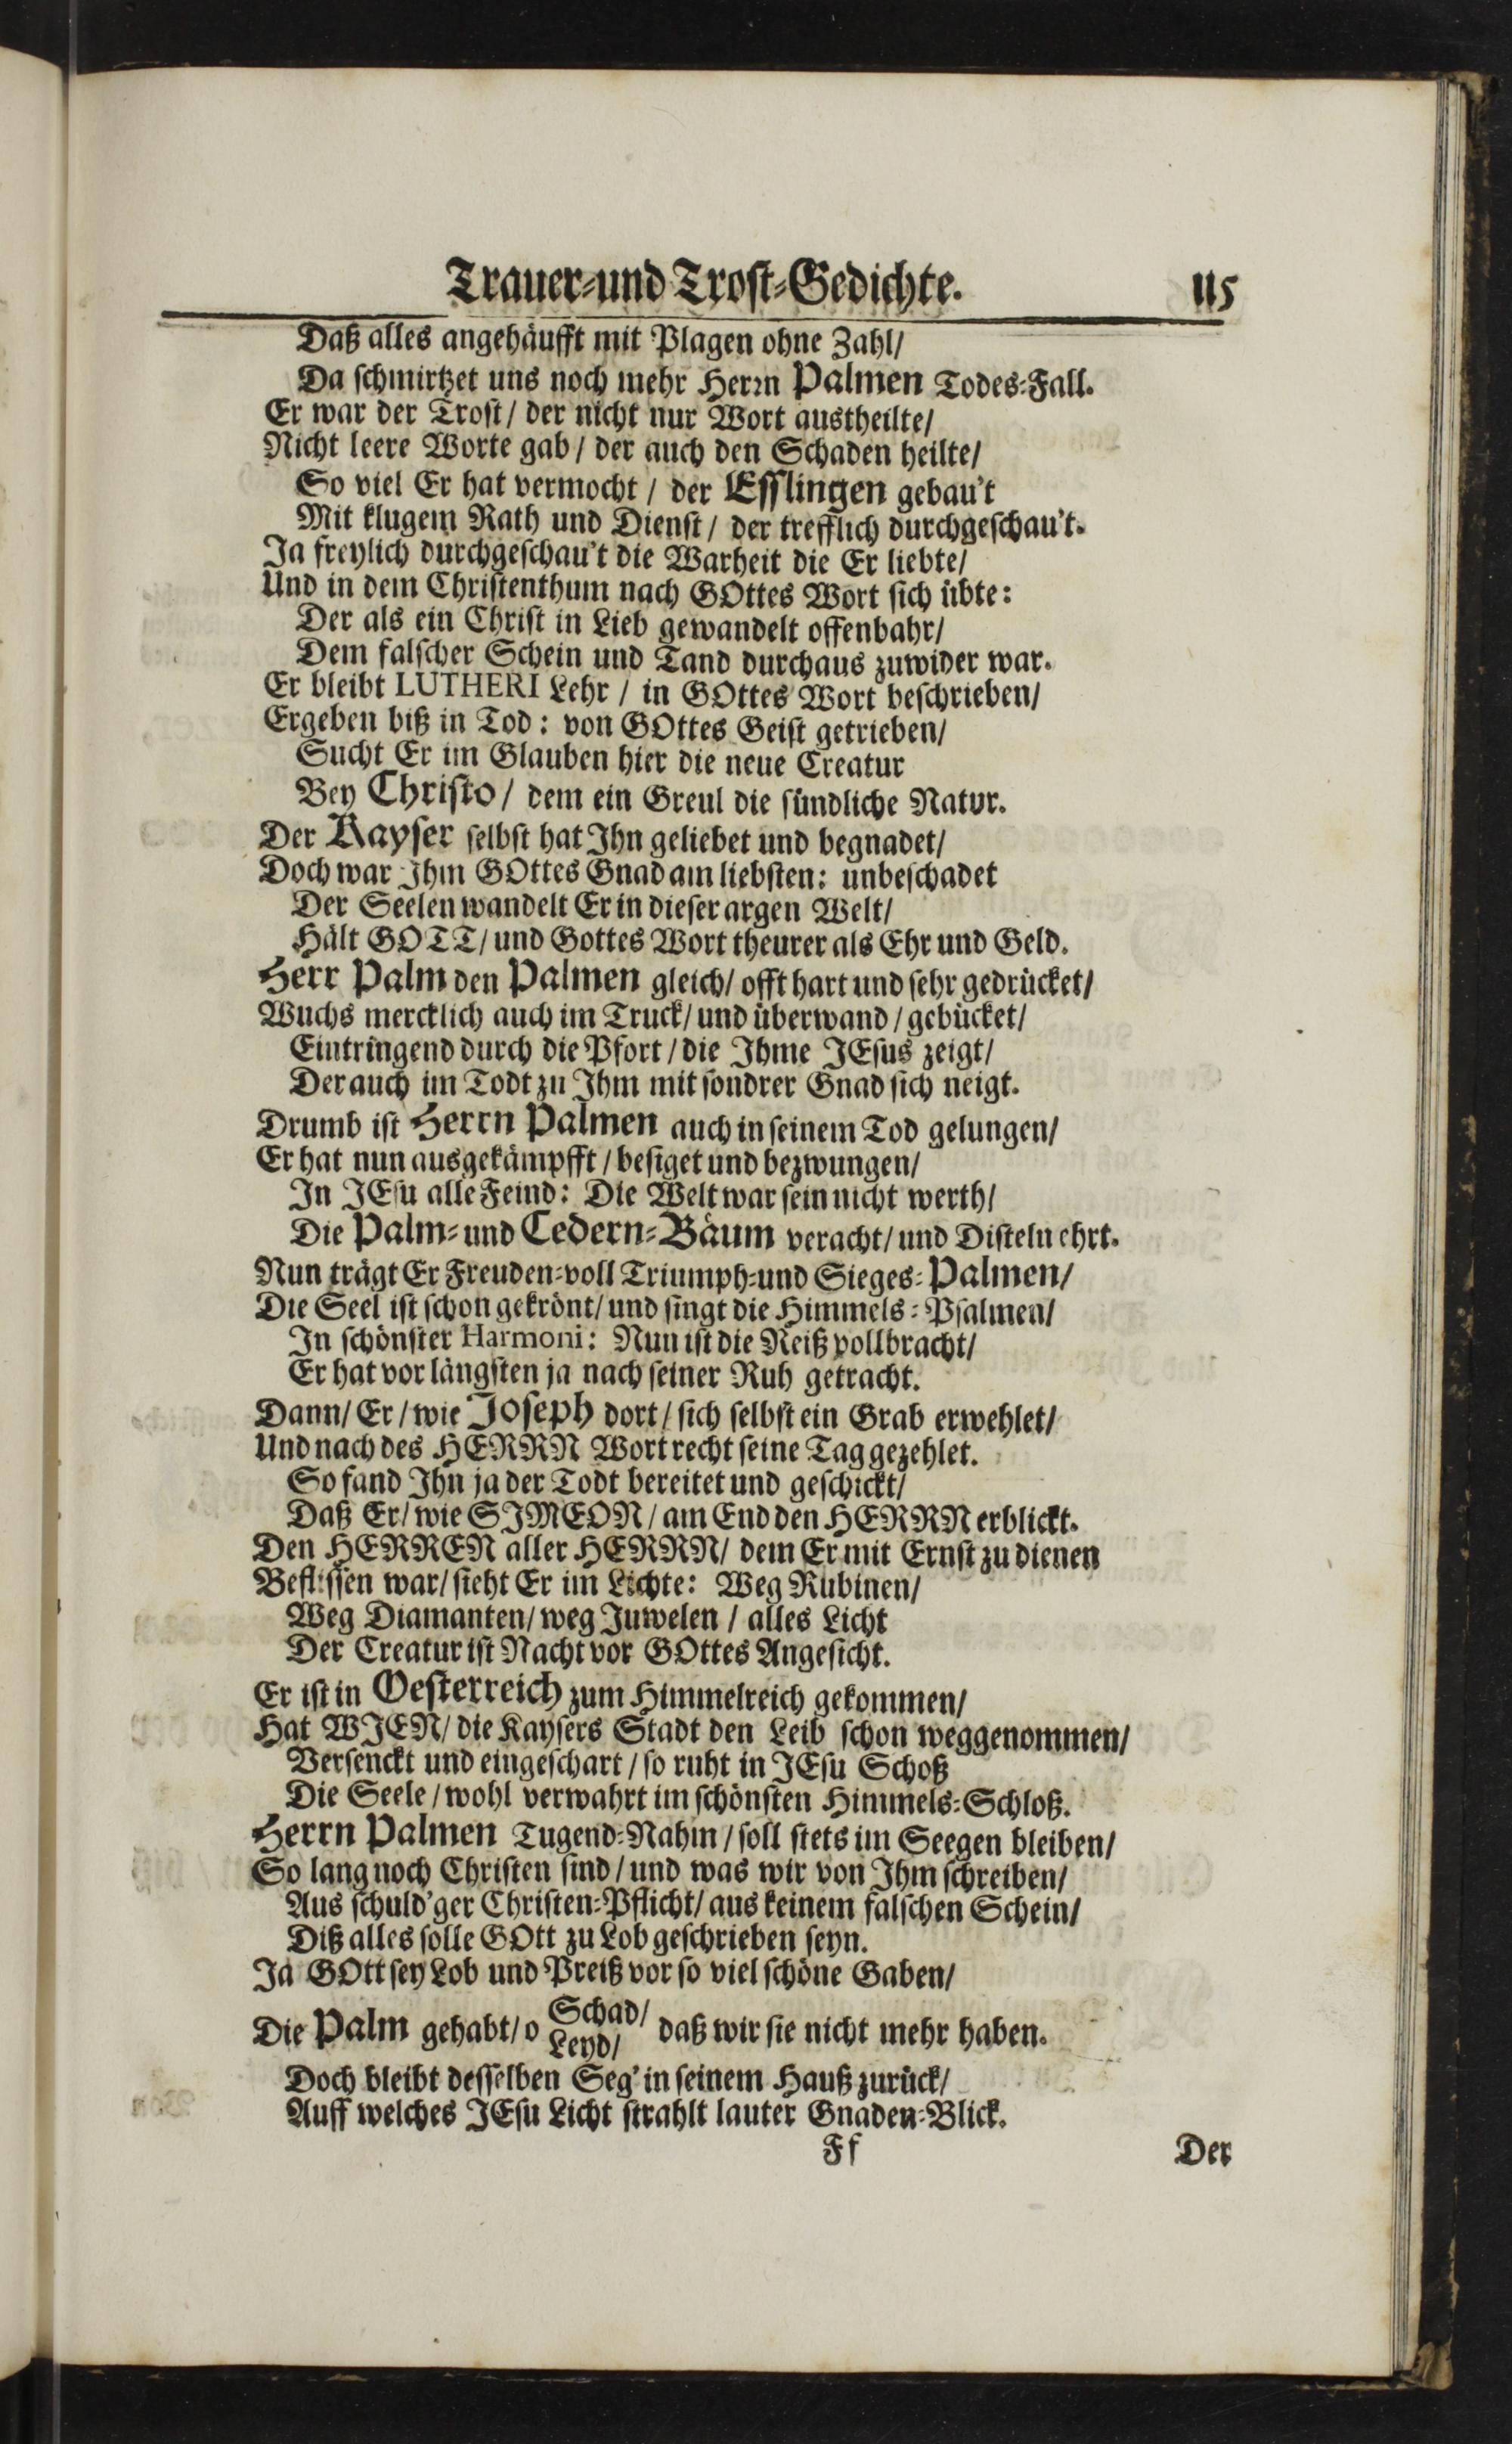 Trauer-und Trost-Gedichte. 115
Daß alles angehäufft mit Plagen ohne Zahl/
Da schmirtzet uns noch mehr Herrn Palmen Todes-Fall.
Er war der Trost / der nicht nur Wort austheilte/
Nicht leere Worte gab / der auch den Schaden heilte/
So viel Er hat vermocht / der Esslingen gebau't
Mit klugem Rath und Dienst / der trefflich durchgeschau't.
Ja freylich durchgeschau't die Warheit die Er liebte/
Und in dem Christenthum nach GOttes Wort sich übte:
Der als ein Christ in Lieb gewandelt offenbahr/
Dem falscher Schein und Tand durchaus zuwider war.
Er bleibt LUTHERI Lehr / in GOttes Wort beschrieben/
Ergeben biß in Tod: von GOttes Geist getrieben/
Sucht Er im Glauben hier die neue Creatur
Bey Christo / dem ein Greul die sündliche Natur.
Der Kayser selbst hat Ihn geliebet und begnadet/
Doch war Ihm GOttes Gnad am liebsten: unbeschadet
Der Seelen wandelt Er in dieser argen Welt/
Hält GOTT/ und Gottes Wort theurer als Ehr und Geld.
Herr Palm den Palmen gleich/ offt hart und sehr gedrücket/
Wuchs mercklich auch im Truck/ und überwand / gebücket/
Eintringend durch die Pfort / die Ihme JEsus zeigt/
Der auch im Todt zu Ihm mit sondrer Gnad sich neigt.
Drumb ist Herrn Palmen auch in seinem Tod gelungen/
Er hat nun ausgekämpfft / besiget und bezwungen/
In JEsu alle Feind: Die Welt war sein nicht werth/
Die Palm- und Cedern-Bäum veracht/ und Disteln ehrt.
Nun trägt Er Freuden-voll Triumph-und Sieges-Palmen/
Die Seel ist schon gekrönt/ und singt die Himmels-Psalmen/
In schönster Harmoni: Nun ist die Reiß vollbracht/
Er hat vor längsten ja nach seiner Ruh getracht.
Dann/ Er / wie Joseph dort / sich selbst ein Grab erwehlet/
Und nach des HERRN Wort recht seine Tag gezehlet.
So fand Ihn ja der Todt bereitet und geschickt/
Daß Er/ wie SIMEON / am End den HERRN erblickt.
Den HERREN aller HERRN/ dem Er mit Ernst zu dienen
Beflissen war/ sieht Er im Lichte: Weg Rubinen/
Weg Diamanten/ weg Juwelen / alles Licht
Der Creatur ist Nacht vor GOttes Angesicht.
Er ist in Oesterreich zum Himmelreich gekommen/
Hat WIEN/ die Kaysers Stadt den Leib schon weggenommen/
Versenckt und eingeschart / so ruht in JEsu Schoß
Die Seele / wohl verwahrt im schönsten Himmels-Schloß.
Herrn Palmen Tugend-Nahm / soll stets im Seegen bleiben/
So lang noch Christen sind / und was wir von Ihm schreiben/
Aus schuld'ger Christen-Pflicht/ aus keinem falschen Schein/
Diß alles solle GOtt zu Lob geschrieben seyn.
Ja GOtt sey Lob und Preiß vor so viel schöne Gaben/
Die Palm gehabt/ o Schad/ Leyd/ daß wir sie nicht mehr haben.
Doch bleibt desselben Seg' in seinem Hauß zurück/
Auff welches JEsu Licht strahlt lauter Gnaden-Blick.
Ff Der